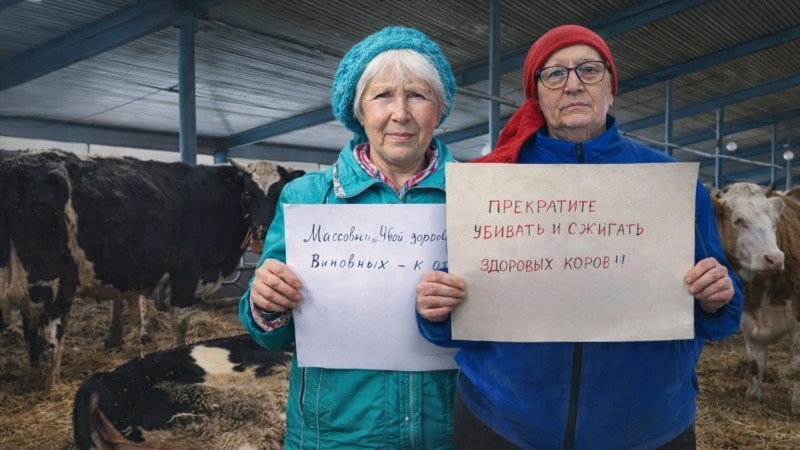 Массовый убой
Виновных - к
ПРЕКРАТИТЕ
УБИВАТЬ И СЖИГАТЬ
ЗДОРОВЫХ КОРОВ!!